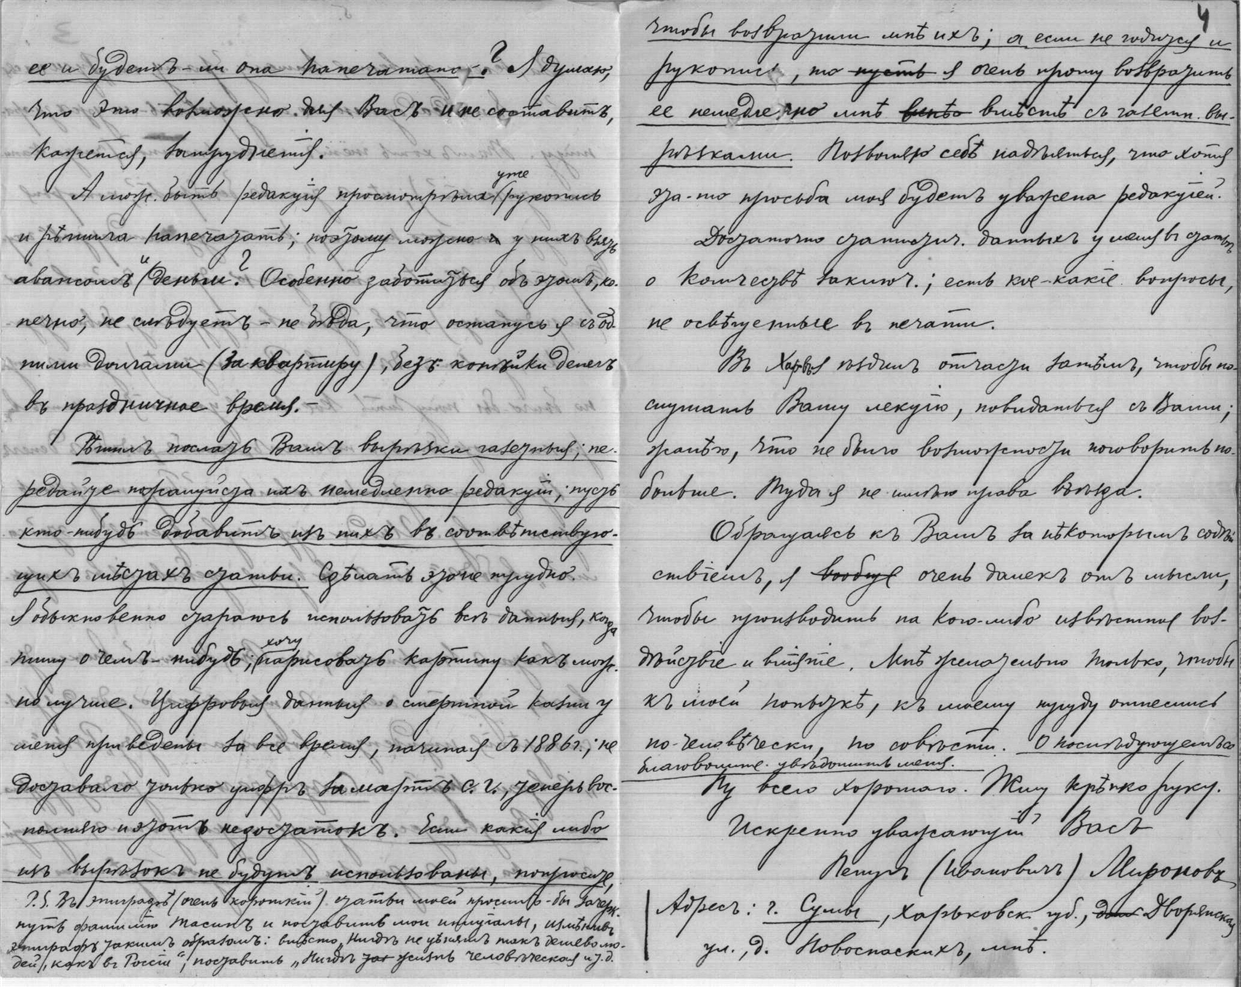 ее и будетъ-ли она напечатана,-? Я думаю,
что это возможно для Васъ и не составитъ,
кажется, затрудненія.
А мож. быть редакція просмотрѣла уже рукопись
и рѣшила напечатать; поэтому можно и у нихъ взять
авансомъ" деньги? Особенно заботиться объ этомъ, ко-
нечно, не слѣдуетъ – не бѣда, что останусь я съ од-
ними долгами (за квартиру), безъ копѣйки денегъ
въ праздничное время.
Рѣшилъ послать Вамъ вырѣзки газетныя; пе-
редайте пожалуйста ихъ немедленно редакціи; пусть
кто-нибудь добавитъ изъ нихъ въ соотвѣтствую-
щихъ мѣстахъ статьи. Сдѣлать это не трудно.
Я обыкновенно стараюсь использовать всѣ данныя, когда
пишу о чемъ-нибудь; хочу нарисовать картину какъ мож-
но лучше. Цифровыя данныя о смертной казни у
меня приведены за все время, начиная съ 1886 г.; не
доставало только цифръ за мартъ с. г., теперь вос-
полняю и этотъ недостатокъ. Если какія либо
изъ вырѣзокъ не будутъ использованы, попросите,
P.S. Въ эпиграфѣ (очень короткій) статьи моей просилъ-бы зачерк-
нуть фамилію Тасинъ и поставить мои иниціалы, измѣнивъ
эпиграфъ такимъ образомъ: вмѣсто „Нигдѣ не цѣнятъ такъ дешево лю-
дей, какъ въ Россіи", поставить „Нигдѣ жизнь человѣческая и т. д.
4
чтобы возвратили мнѣ ихъ; а если не годится и
рукопись, то пусть я очень прошу возвратить
ее немедленно мнѣ вмѣстѣ съ газетн. вы-
рѣзками. Позволяю себѣ надѣяться, что хотя
эта-то просьба моя будетъ уважена редакціей.
Достаточно статистич. данныхъ у меня въ статьѣ
о количествѣ заключ.; есть кое-какіе вопросы,
не освѣщенные въ печати.
Въ Харьк ѣздилъ отчасти затѣмъ, чтобы по-
слушать Вашу лекцію, повидаться съ Вами;
жалѣю, что не было возможности поговорить по-
больше. Туда я не имѣю права въѣзда.
Обращаясь къ Вамъ за нѣкоторымъ содѣй-
ствіемъ, я вообще очень далекъ отъ мысли,
чтобы производить на кого-либо извѣстное воз-
дѣйствіе и вліяніе. Мнѣ желательно только, чтобы
къ моей попыткѣ, къ моему труду отнеслись
по-человѣчески, по совѣсти. О послѣдующемъ
благоволите увѣдомить меня.
Ну всего хорошаго. Жму крѣпко руку.
Искренно уважающій Васъ
Петръ (Ивановичъ) Мироновъ
Адресъ: г. Сумы, Харьковск. губ., Дворянская
ул., д. Новоспаскихъ, мнѣ.